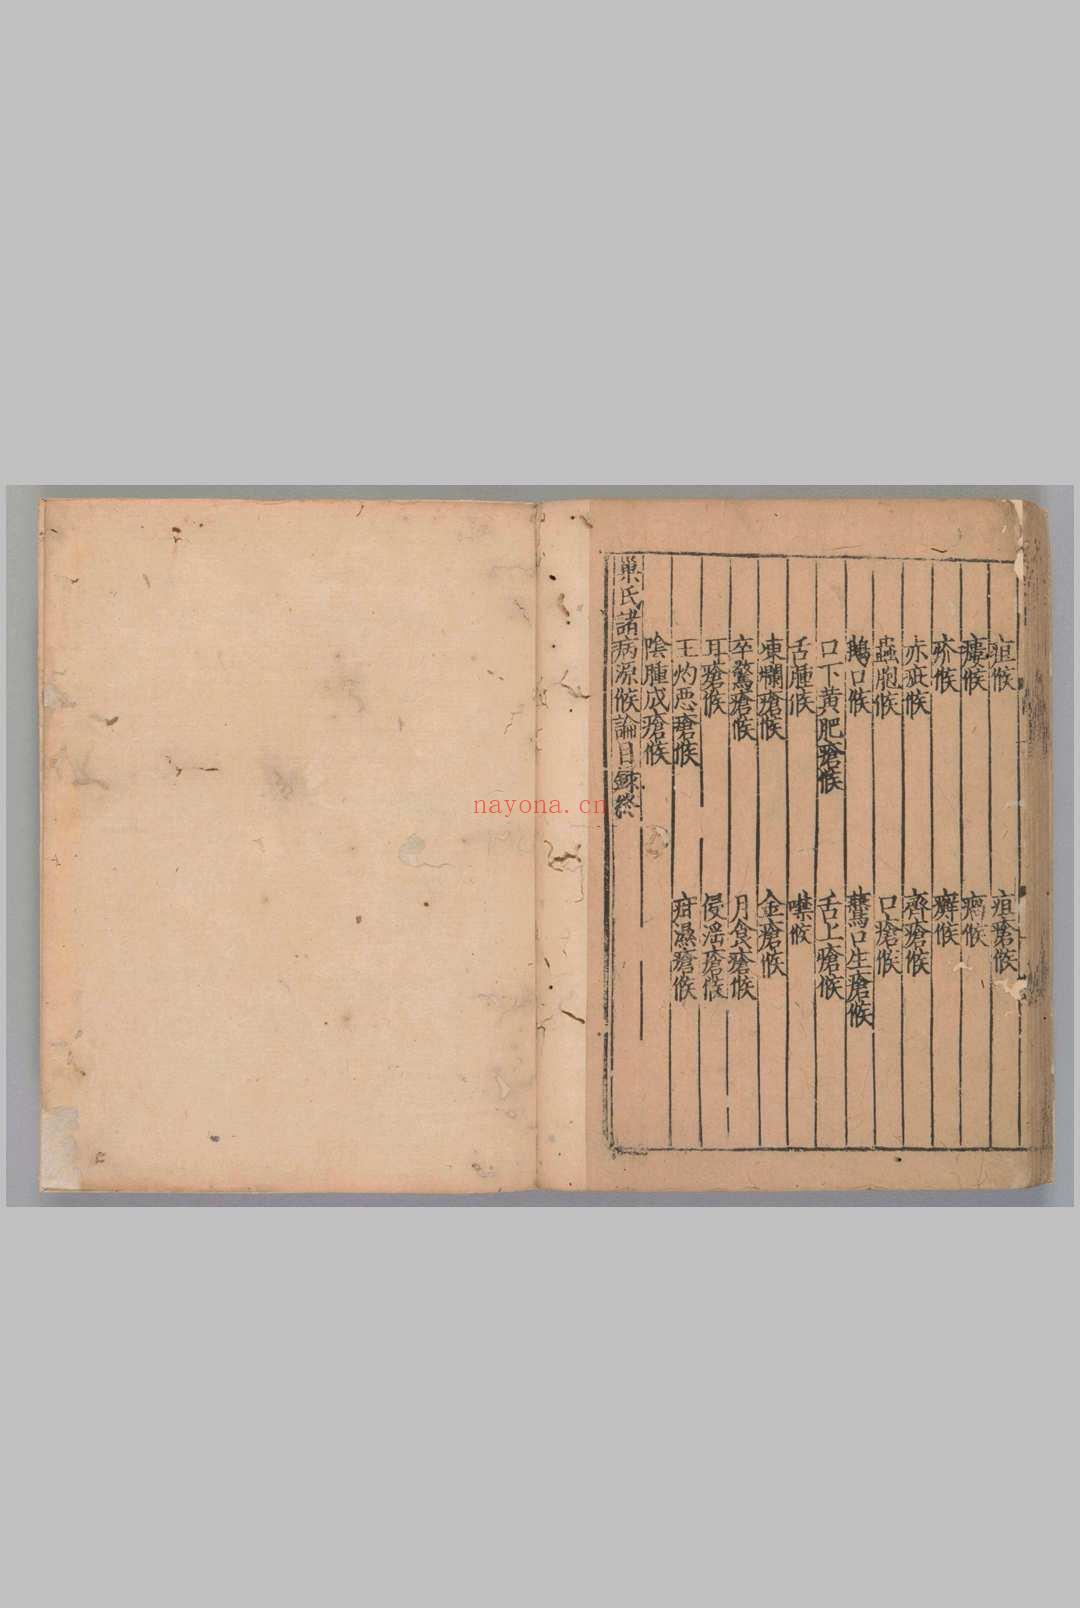 疽候 疽瘡候
瘻候 瘑候
疥候 癬候
赤疵候 臍瘡候
蟲胞候 口瘡候
鵝口候 鷰口生瘡候
口下黃肥瘡候 舌上瘡候
舌腫候 噤候
凍爛瘡候 金瘡候
卒驚瘡候 月食瘡候
耳瘡候 侵淫瘡候
王灼惡瘡候 疳濕瘡候
陰腫成瘡候
巢氏諸病源候論目錄終
nayona.cn